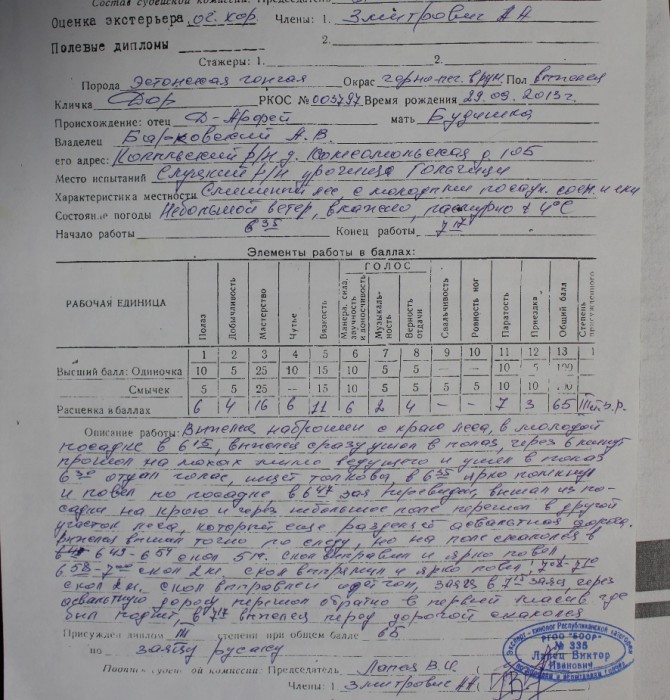 Состав судейской комиссии: Председатель
Оценка экстерьера оч. хор. Члены: 1. Змитрович А А
Полевые дипломы 2.
Стажеры: 1. 2.
Порода Эстонская гончая Окрас черно-пег. в рум. Пол выжлец
Кличка Дор РКОС № 003797 Время рождения 29.09.2013г.
Происхождение: отец Д-Арфей мать Будишка
Владелец Барковский А.В.
его адрес: Копыльский р/н д. Комсомольская д. 105
Место испытаний Слуцкий р/н урочище
Характеристика местности Смешанный лес, с молодыми посадк. сосн. и ели
Состояние погоды Небольшой ветер, влажно, пасмурно + 4°C
Начало работы 6 35 Конец работы 7 17
Элементы работы в баллах:
РАБОЧАЯ ЕДИНИЦА
Полаз
Добычливость
Мастерство
Чутье
Вязкость
ГОЛОС
Манера, сила, звучность и доносчивость
Музыкальность
Верность отдачи
Свальчивость
Ровность ног
Паратость
Приездка
Общий балл
Степень
1 2 3 4 5 6 7 8 9 10 11 12 13 1
Высший балл: Одиночка 10 5 25 10 15 10 5 5 — — 10 5 100
Смычек 5 5 25 — 15 10 5 5 10 100
Расценка в баллах 6 4 16 6 11 6 2 4 — — 7 3 65 III
Описание работы: Выжлец наброшен с краю леса, в молодой
посадке в 6 15, выжлец сразу ушел в полаз, через 6 минут
прошел на махах мимо ведущего и ушел в полаз
6 30 отдал голос, ищет толково, в 6 35 ярко помкнул
и повел по посадке, в 6 42 заяц перевиден, вышел из по-
садки на краю и через небольшое поле перешел в другой
участок леса, который еще разделяет асфальтная дорога.
Выжлец вышел точно по следу, но на поле скололся в
6 49 - 6 54 скол 5 м. Скол выправил и ярко повел
6 58 - 7 00 скол 2 м. скол выправил и ярко повел, 7 08 - 7 10
скол 2 м. скол выправлен идет гон, заяц в 7 15 заяц через
асфальтную дорогу перешел обратно в первый массив где
был поднят, в 7 17 выжлец перед дорогой скололся
Присужден диплом III степени при общем балле 65
по зайцу русаку
Подписи судейской комиссии: Председатель Лапец В.И.
Члены: 1 Змитрович А.А.
Эксперт - кинолог Республиканской категории
РГОО "БООР"
№ 335
Лапец Виктор
Иванович